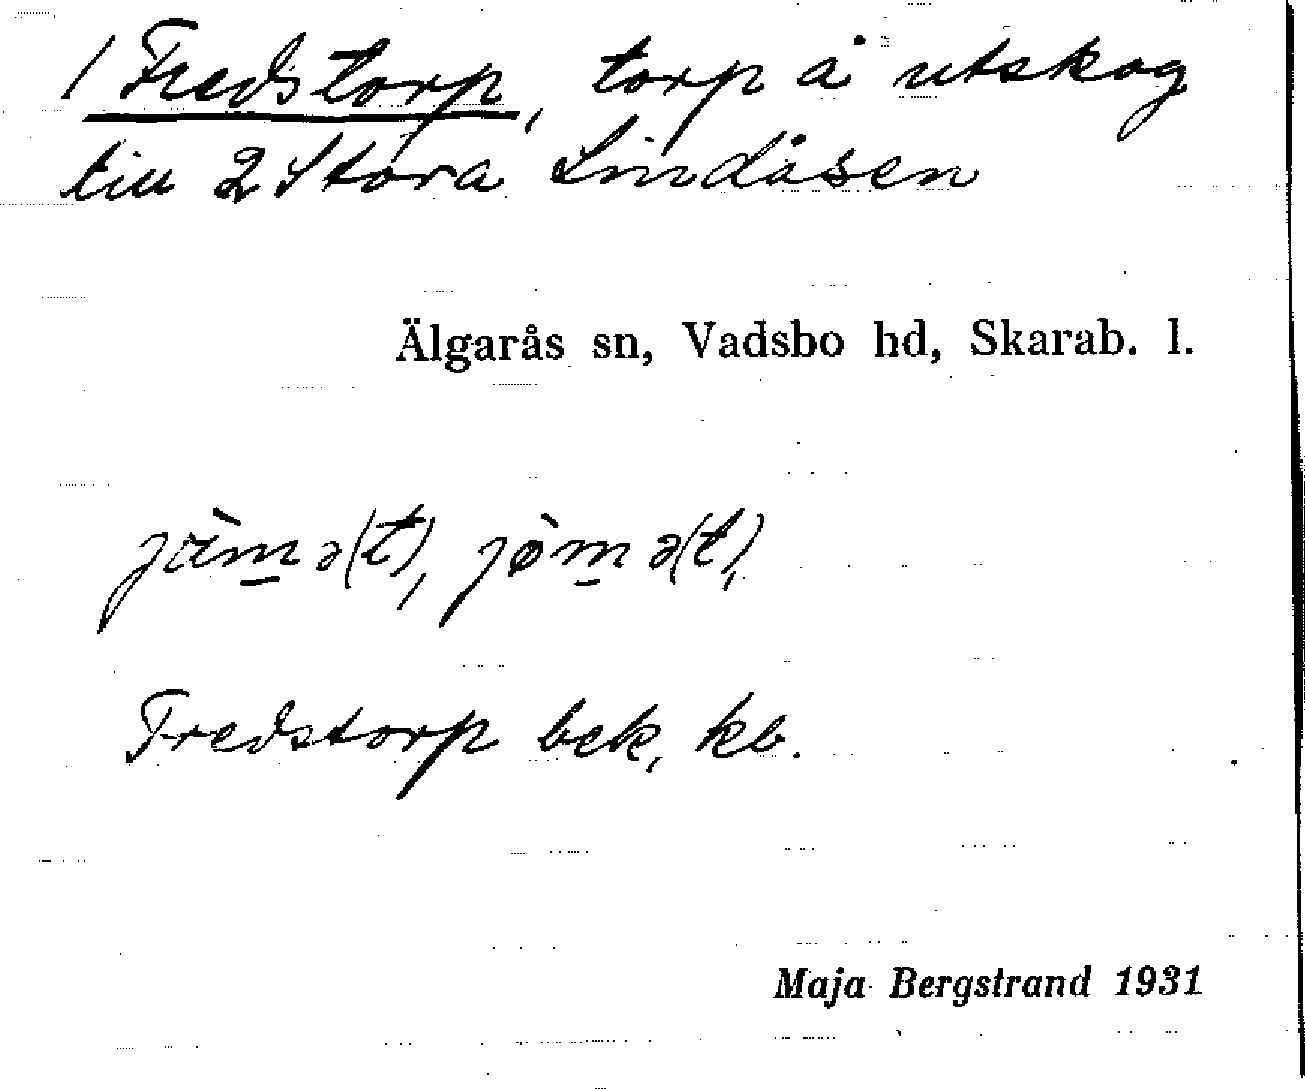 1 Fredstorp, torp å utskog
till 2 Stora Lindåsen
Älgarås sn, Vadsbo hd, Skarab. l.
jø̀m̲ə(t),
Fredstorp bek, kb.
Maja Bergstrand 1931